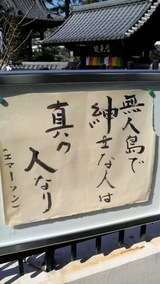 無人島で
紳士な人は
真の
人なり
(エマーソン)